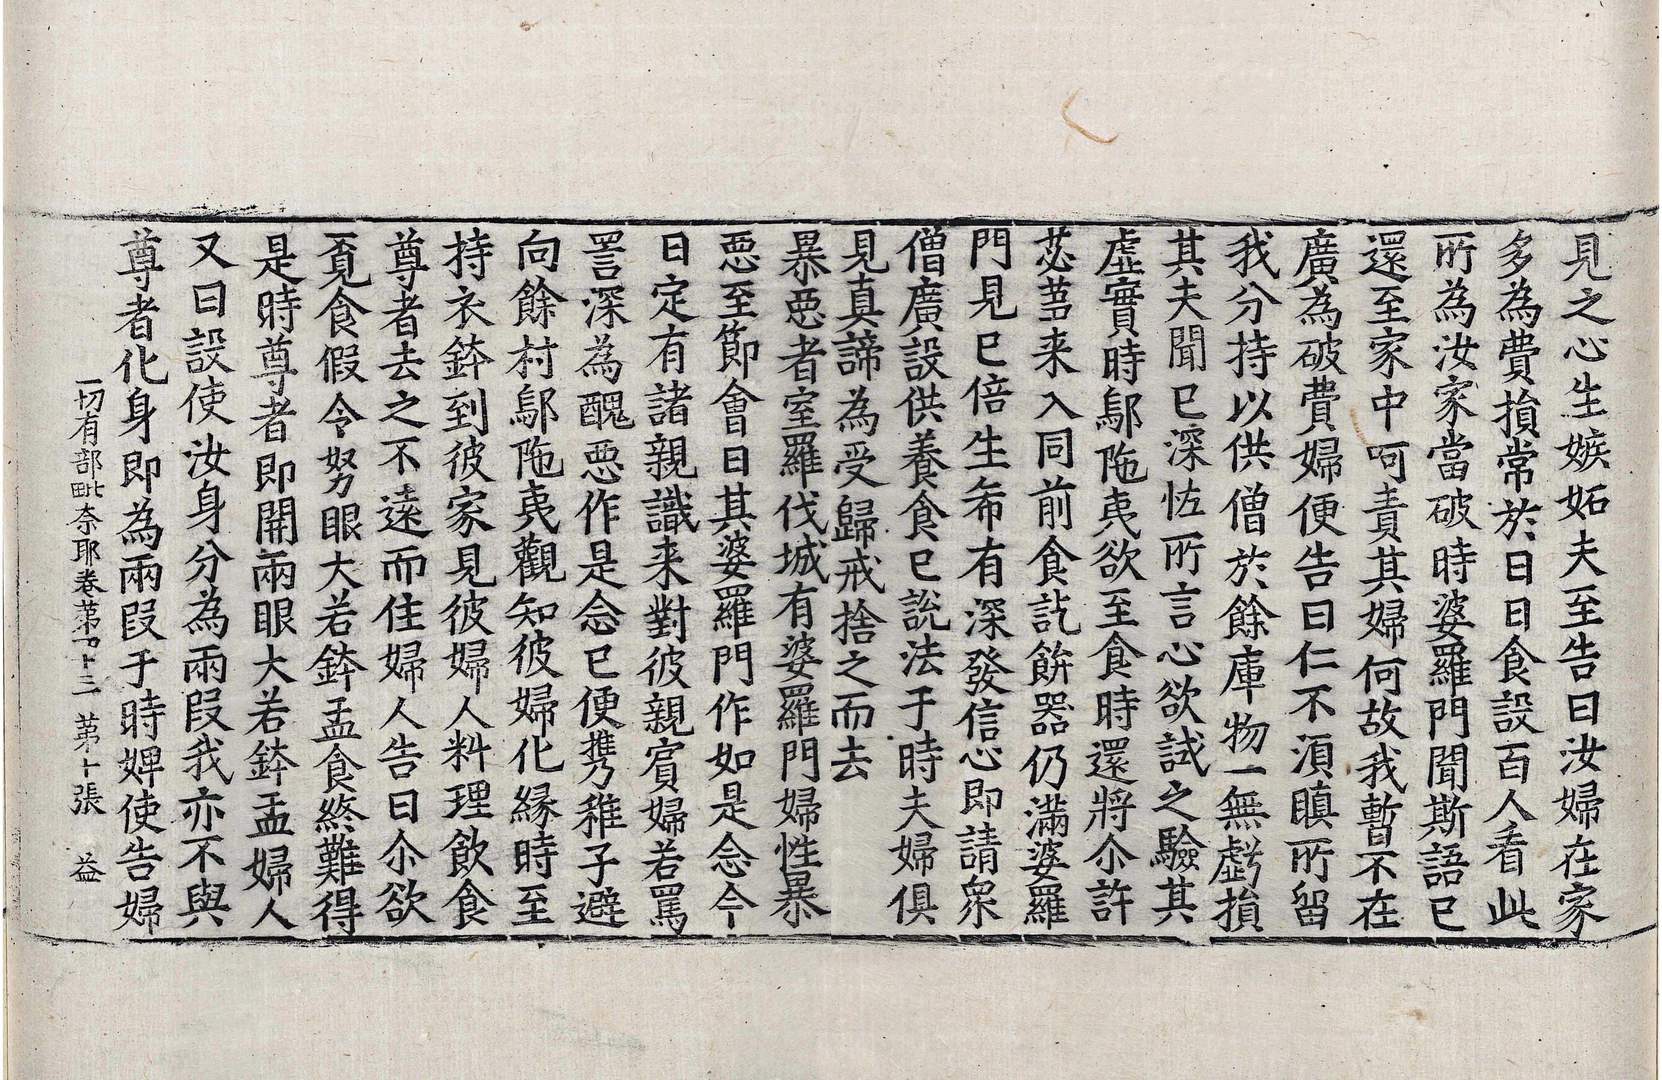 見之心生嫉妬夫至告曰汝婦在家
多為費損常於日日食設百人看此
所為汝家當破時婆羅門聞斯語已
還至家中呵責其婦何故我暫不在
廣為破費婦便告曰仁不湏瞋所留
我分持以供僧於餘庫物一無虧損
其夫聞已深恠所言心欲試之驗其
虛實時鄔陁夷欲至食時還將尒許
苾芻来入同前食訖餅器仍滿婆羅
門見已倍生希有深發信心即請衆
僧廣設供養食已說法于時夫婦俱
見真諦為受歸戒捨之而去
暴惡者室羅伐城有婆羅門婦性暴
惡至節會日其婆羅門作如是念今
日定有諸親識来對彼親賓婦若罵
詈深為醜惡作是念已便攜稚子避
向餘村鄔陁夷觀知彼婦化緣時至
持衣鉢到彼家見彼婦人料理飲食
尊者去之不遠而住婦人告曰尒欲
覓食假令努眼大若鉢盂食終難得
是時尊者即開兩眼大若鉢盂婦人
又曰設使汝身分為兩段我亦不與
尊者化身即為兩段于時婢使告婦
一切有部毗奈耶卷第四十三 第十張 益